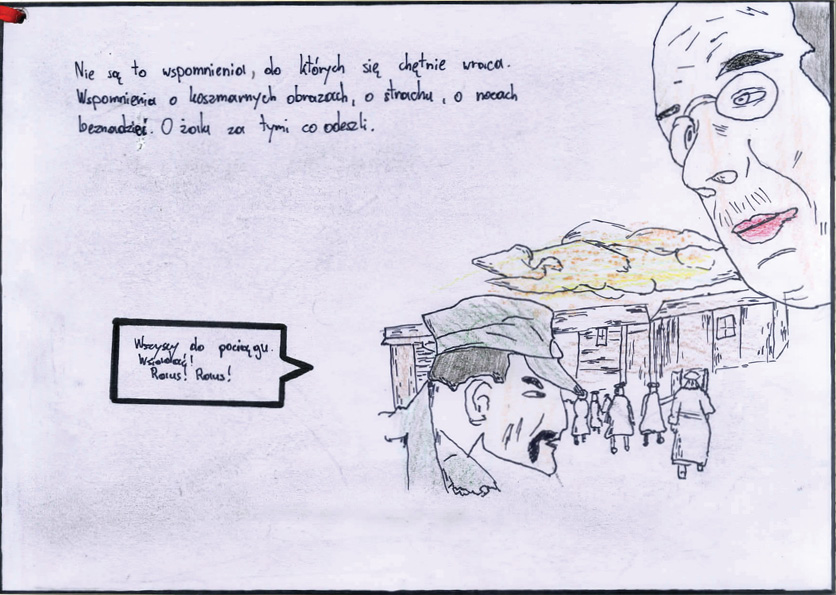 Nie są to wspomnienia, do których się chętnie wraca.
Wspomnienia o koszmarnych obrazach, o strachu, o nocach
beznadziei. O żalu za tymi co odeszli.
Wszyscy do pociągu.
Wsiadać!
Raus! Raus!